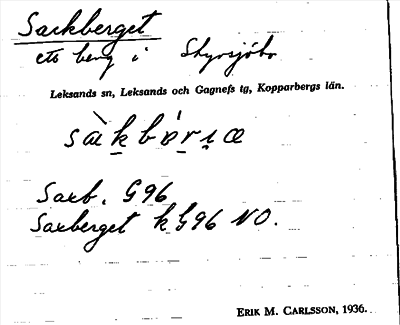 Sackberget
ett berg i Styrsjöbo
Leksands sn, Leksands och Gagnefs tg, Kopparbergs län.
Saxb. G96
Saxberget k G96 NO.
ERIK M. CARLSSON, 1936.